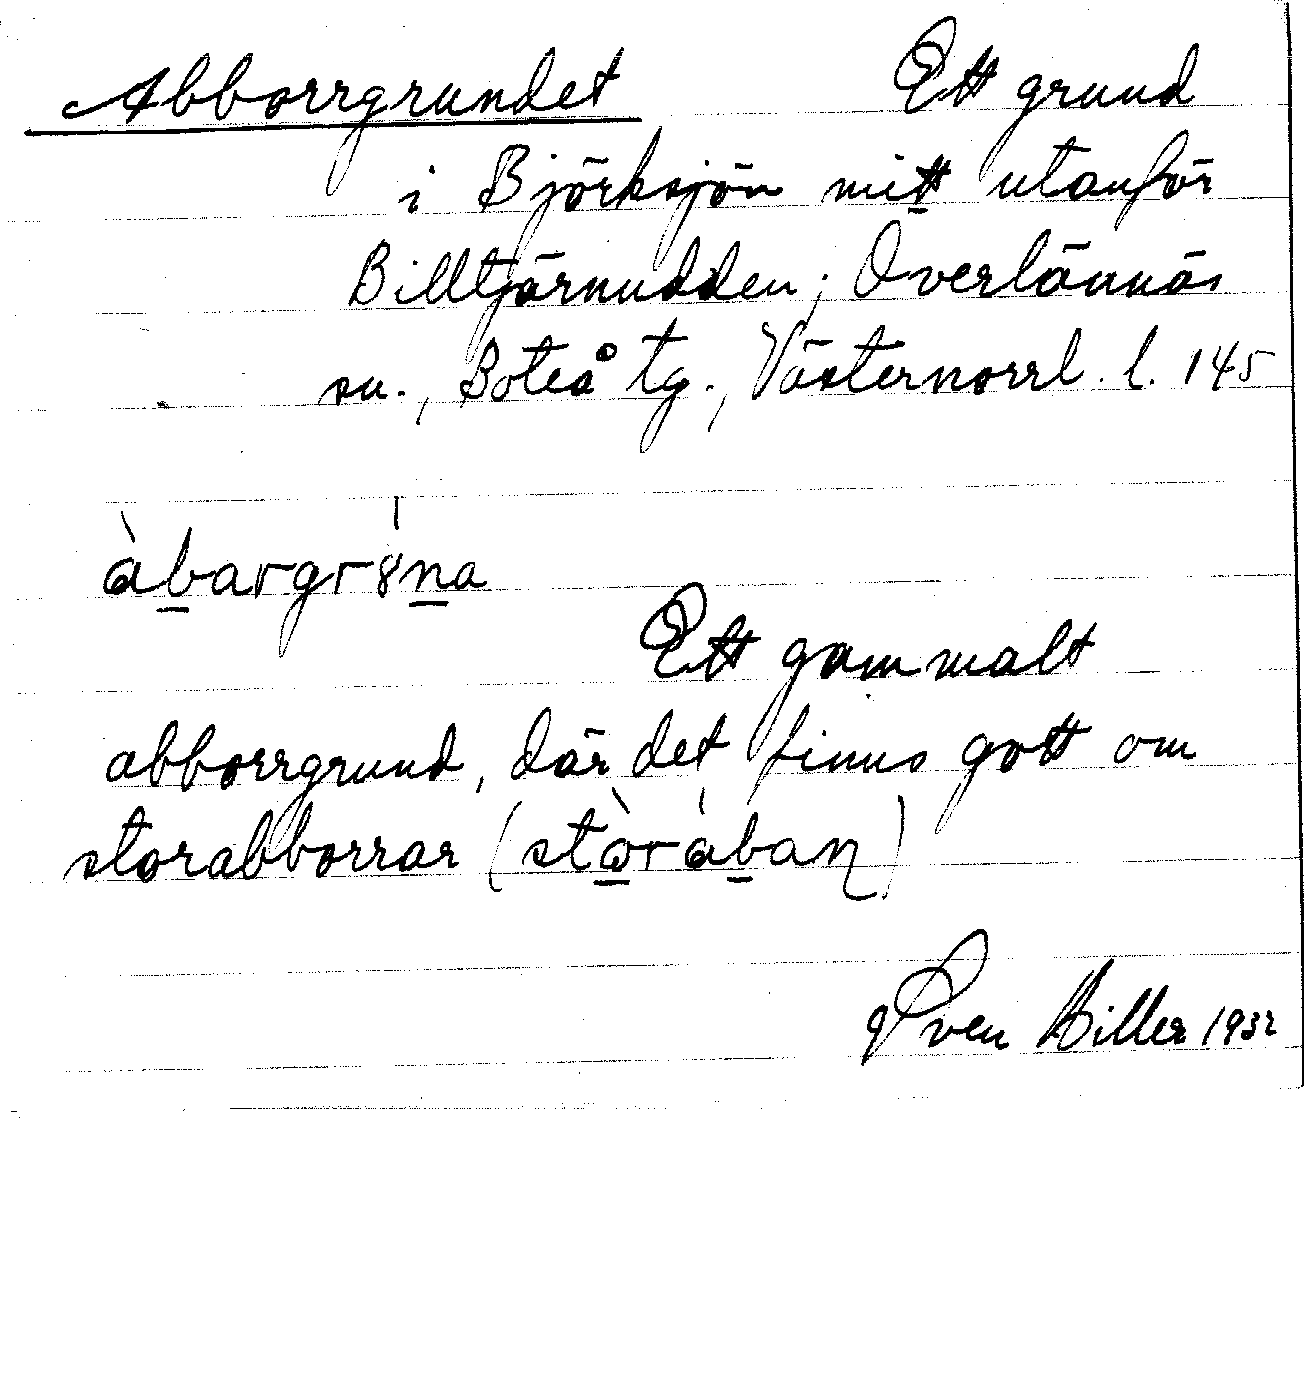 Abborrgrundet Ett grund
i Björksjön mitt utanför
Billtjärnudden; Överlännäs
sn., Boteå tg., Västernorrl. l. 145
àbargr8́na
Ett gammalt
abborrgrund, där det finns gott om
storabborrar (stòrában)
Sven Hiller 1932